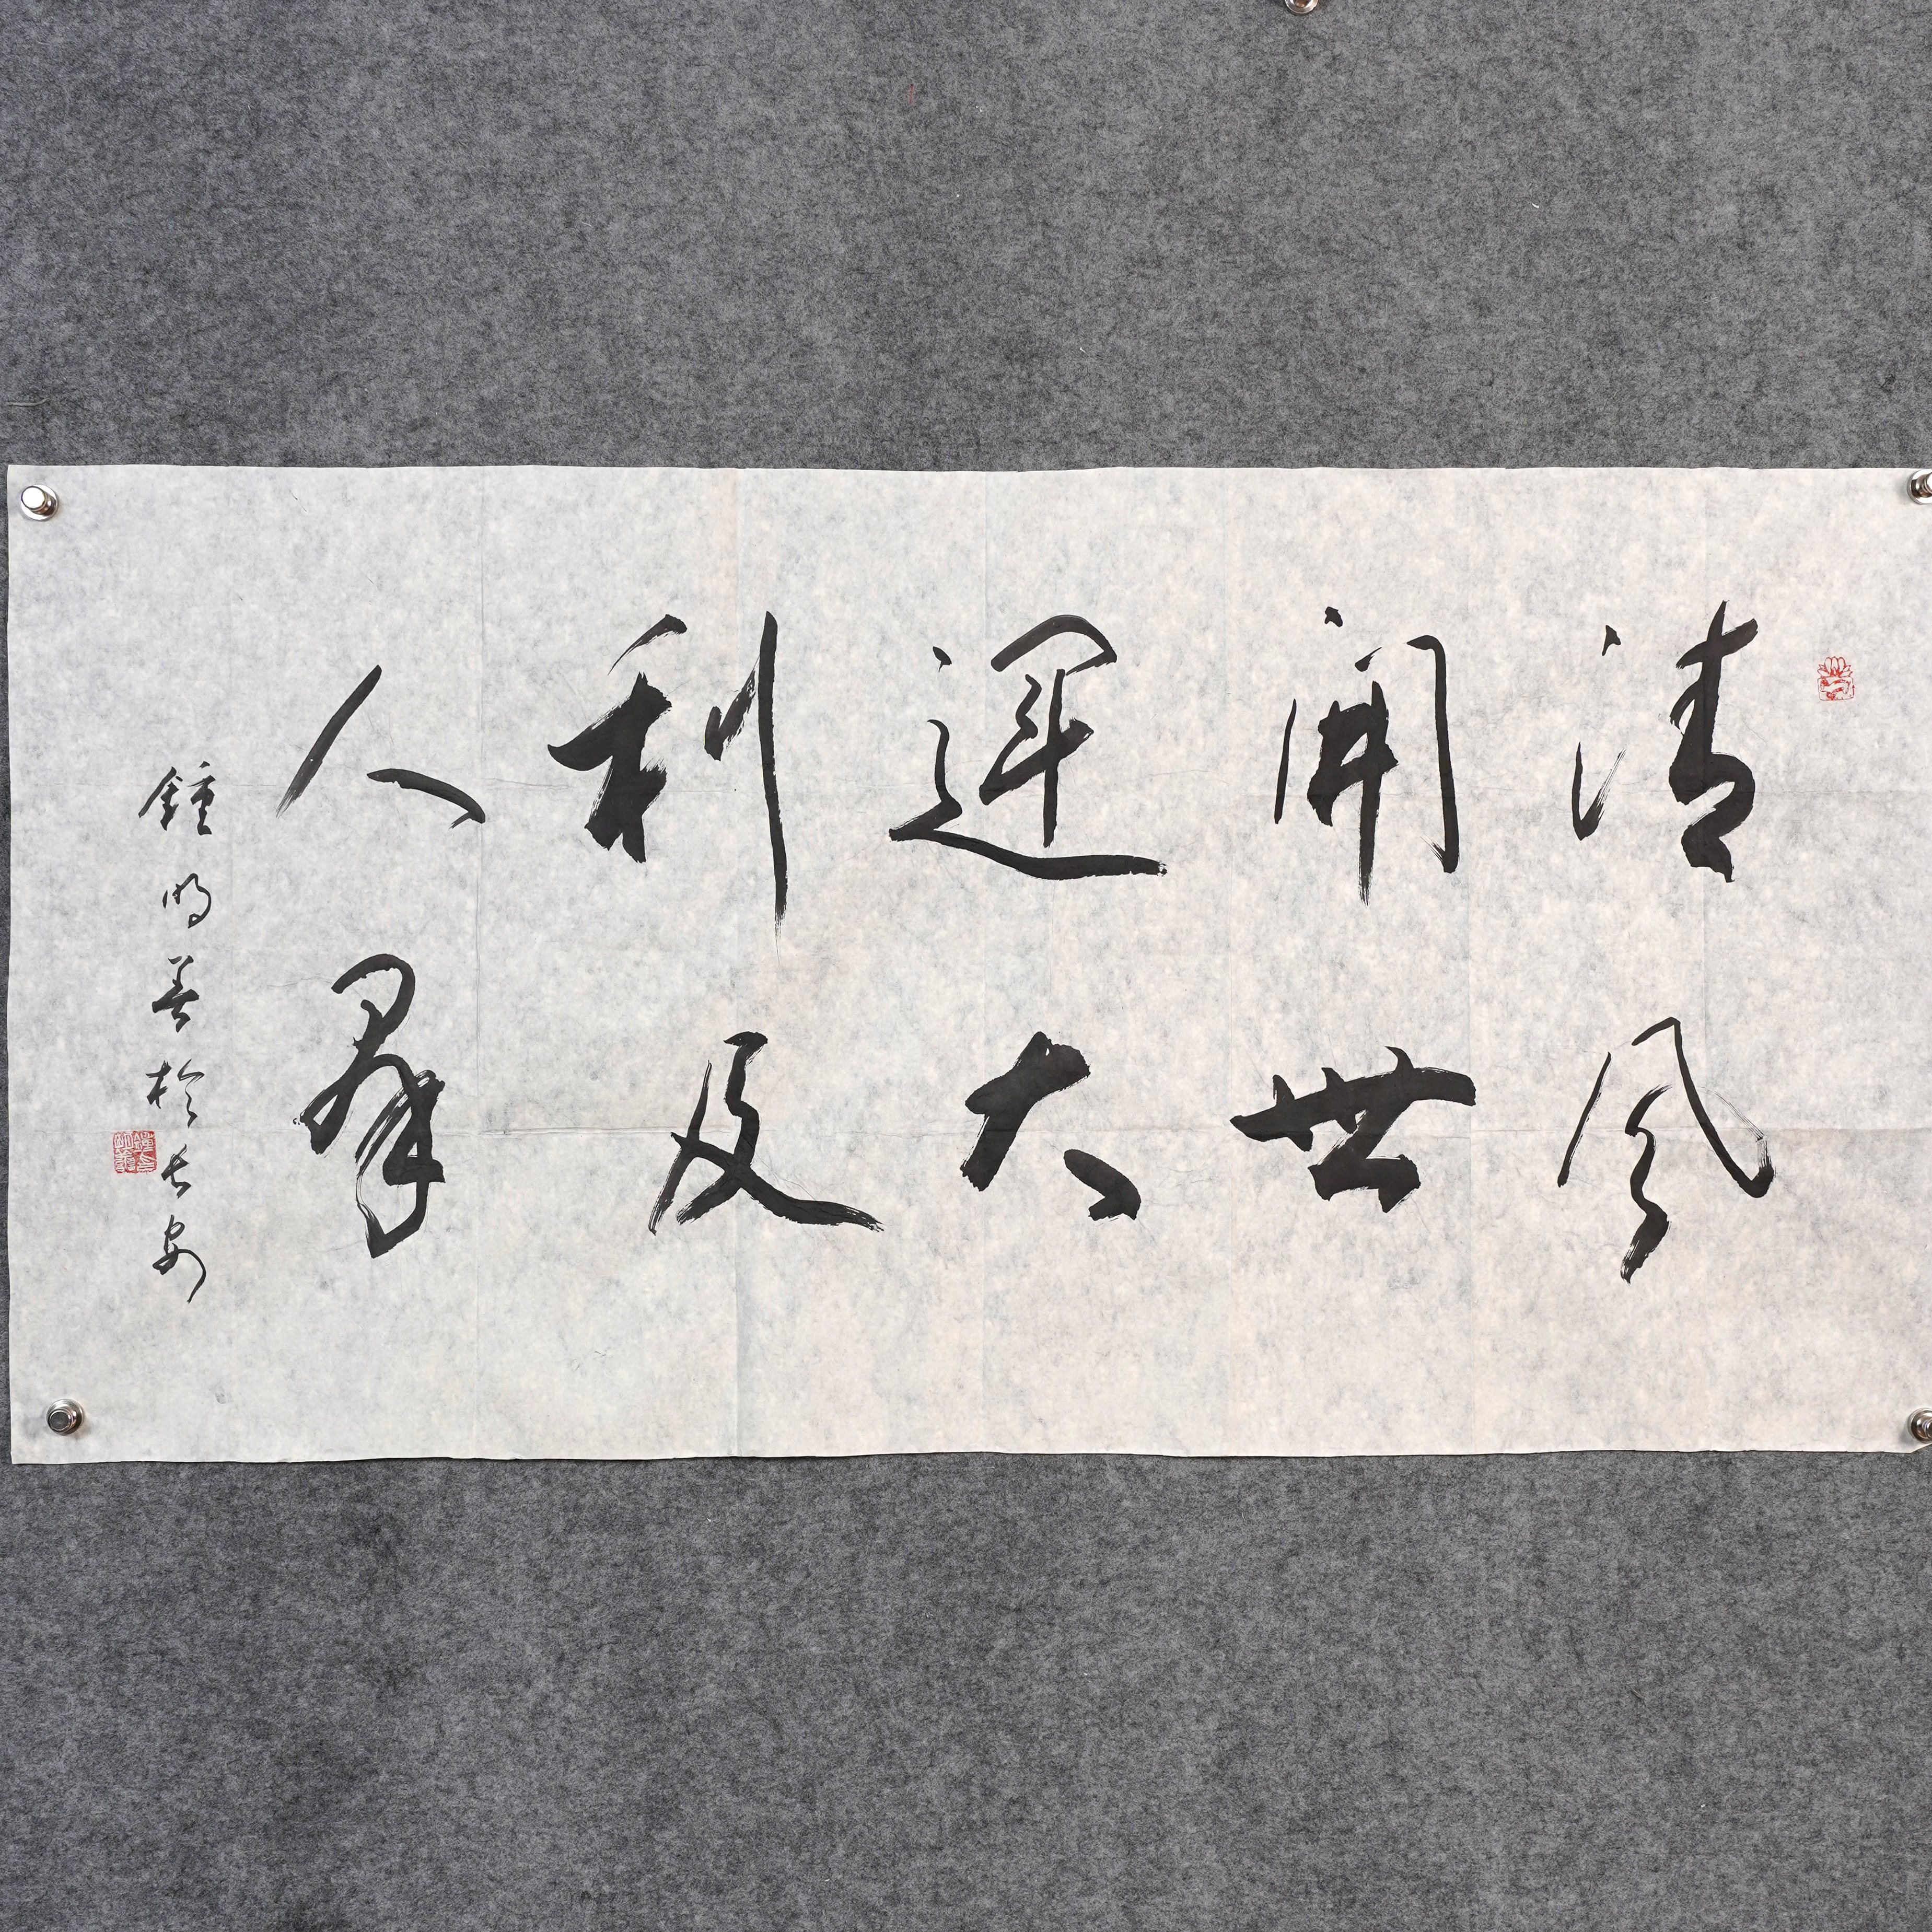 清風
開世
運大
利及
人羣
鍾明善於长安